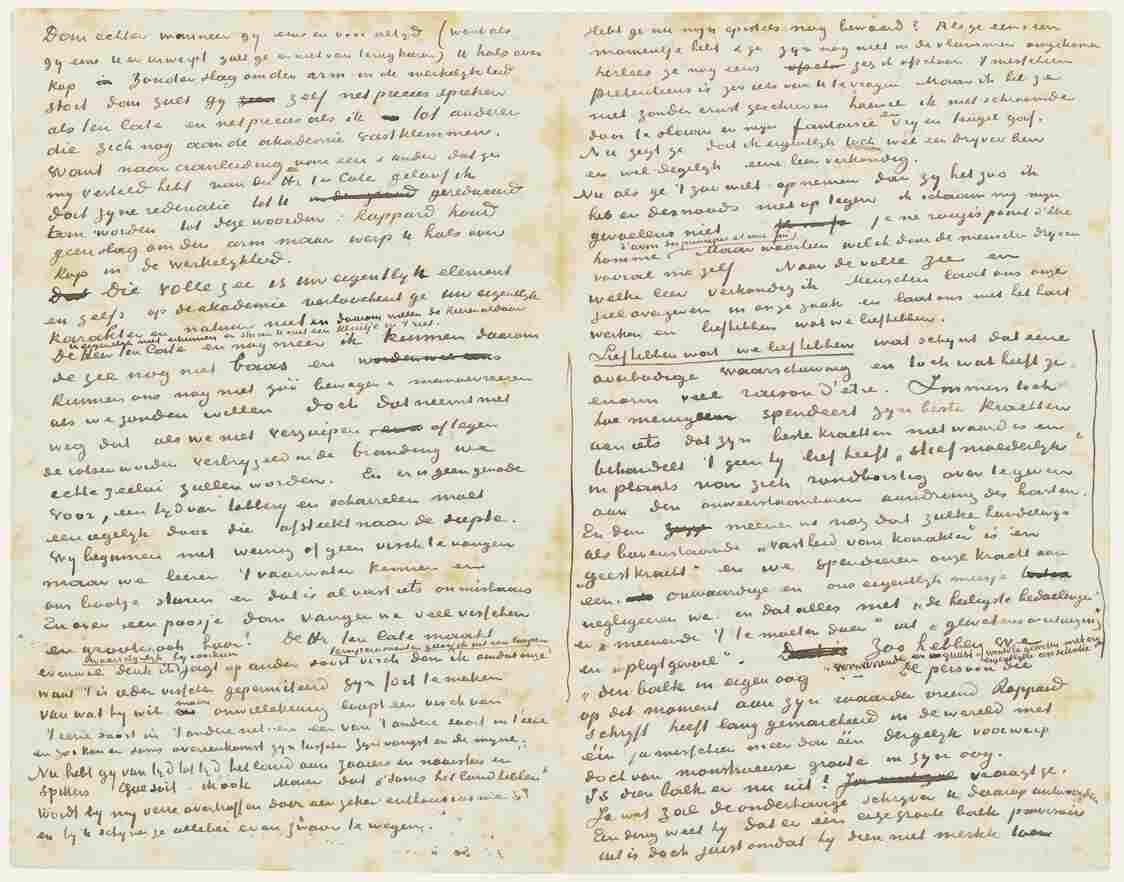 Dan echter wanneer gy eens en voor altyd (want als
gy eens U en urwerpt zult ge er niet van terugkeren) U hals over
kop in zonder slag om den arm in de werkelykheid
stort dan zult gy zelf net precies spreken
als ten Cate en net precies als ik tot anderen
die zich nog aan de akademie vastklemmen.
Want naar aanleiding van een & ander dat ge
my verteld hebt van den Hr ten Cate geloof ik
dat zyne redenatie tot gereduceerd
kan worden tot deze woorden: Rappard houd
geen slag om den arm maar werp U hals over
kop in de werkelykheid.
Die volle zee is Uw eigentlyk element
en zelfs op de akademie verloochent ge Uw eigentlyk
karakter en natuur niet en daarom zullen de heeren aldaar
De Heer ten Cate en nog meer ik kennen daarom
de zee nog niet baas en
kunnen ons nog niet zóó bewegen & manoeuvreeren
als we zouden willen doch dat neemt niet
weg dat als we niet verzuipen of tegen
de rotsen worden verbryzeld in de branding we
echte zeelui zullen worden. En er is geen genade
voor, een tyd van tobbery en scharrelen moet
een iegelyk door die afsteekt naar de diepte.
Wy beginnen met weinig of geen visch te vangen
maar we leeren 't vaarwater kennen en
ons bootje sturen en dat is al vast iets onmisbaars
En over een poosje dan vangen we veel visschen
en groote ook hoor! De Hr ten Cate maakt
evenwel denk ik jagt op ander soort visch dan ik
want 't is ieder visscher gepermitteerd zyn fort te maken
van wat hy wil maar onwillekeurig loopt een visch van
't eene soort in 't andere net en een van 't andere soort in 't eene
en zoo kan er soms overeenkomst zyn tusschen zyn vangst en de myne.
Nu hebt gy van tyd tot tyd het land aan zaaiers en naaisters en
spitters. Quesoit. ik ook. Maar dat "soms het land hebben"
wordt by my verre overtroffen door een zeker enthousiasme
en by U schynen ze allebei even zwaar te wegen.
Hebt ge nu myn epistels nog bewaard? Als ge eens een
momentje hebt & ze zyn nog niet in de vlammen omgekomen
herlees ze nog eens zeg ik ofschoon 't misschien
pretentieus is zoo iets van U te vragen Maar ik heb ze
niet zonder ernst geschreven hoewel ik niet schroomde
door te slaan en myn fantaisie den vryen teugel gaf.
Nu zegt ge dat ik eigentlyk toch wél een dryver ben
en wel degelyk eene leer verkondig.
Nu als ge 't zoo wilt opnemen dan zy het zoo ik
heb er desnoods niet op tegen ik schaam my myn
gevoelens niet je ne rougis point d'être
homme Maar waarheen wil ik dan de menschen dryven
vooral me zelf Naar de volle zee en
welke leer verkondig ik Menschen laat ons onze
ziel overgeven in onze zaak en laat ons met het hart
werken en liefhebben wat we liefhebben.
Liefhebben wat we liefhebben wat schynt dat eene
overbodige waarschuwing en toch wat heeft ze
enorm veel raison d'être. Immers toch
hoe menigeen spendeert zyn beste krachten
aan iets dat zyn beste krachten niet waard is en
behandelt 't geen hy lief heeft "stiefmoederlyk"
in plaats van zich rondborstig over te geven
aan den onweerstaanbaren aandrang des harten.
En dan meenen we nog dat zulke handelwys
als bovenstaande "vastheid van karakter" is en
"geestkracht" en we spendeeren onze kracht aan
een onwaardige en ons eigentlyk meisje
negligeeren we. en dat alles met "de heiligste bedoelingen"
en "meenende 't te moeten doen" uit "gewetensovertuiging"
en "pligtgevoel". Zoo hebben we
"den balk in eigen oog De persoon die
op dit moment aan zyn waarden vriend Rappard
schryft heeft lang gemarcheerd in de wereld met
één, ja misschien meer dan één dergelyk voorwerp
doch van monstrueuse grootte in zyn oog.
Is dien balk er nu uit? vraagt ge.
Ja wat zal de onderhavige schryver U daarop antwoorden
Een ding weet hy dat er één erg groote balk pourvoir
uit is doch juist omdat hy dien niet merkte